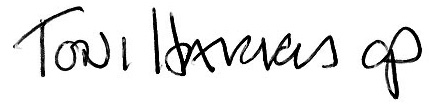 Toni Harris op